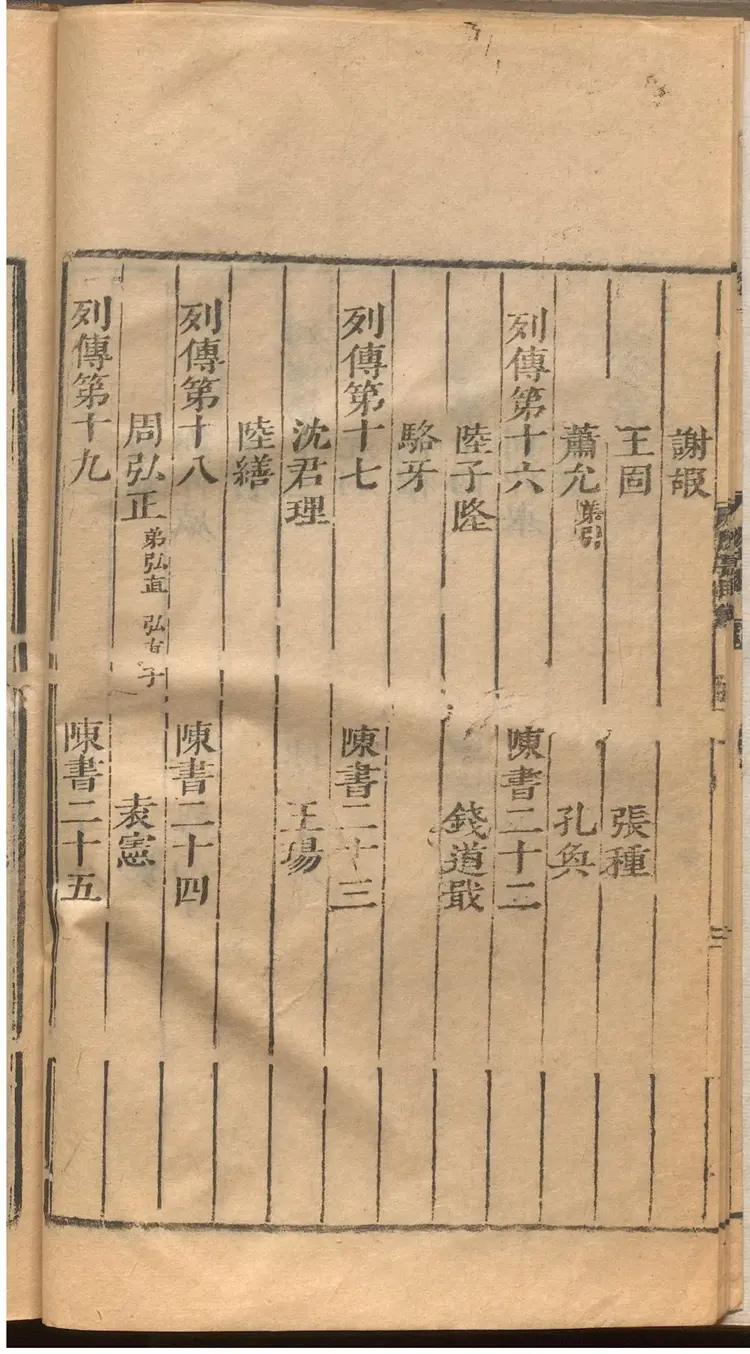 謝嘏
王固 張種
蕭允 弟引 孔奐
列傳第十六 陳書二十二
陸子隆 錢道戢
駱牙
列傳第十七 陳書二十三
沈君理 王瑒
陸繕
列傳第十八 陳書二十四
周弘正 弟弘直 弘直子 袁憲
列傳第十九 陳書二十五